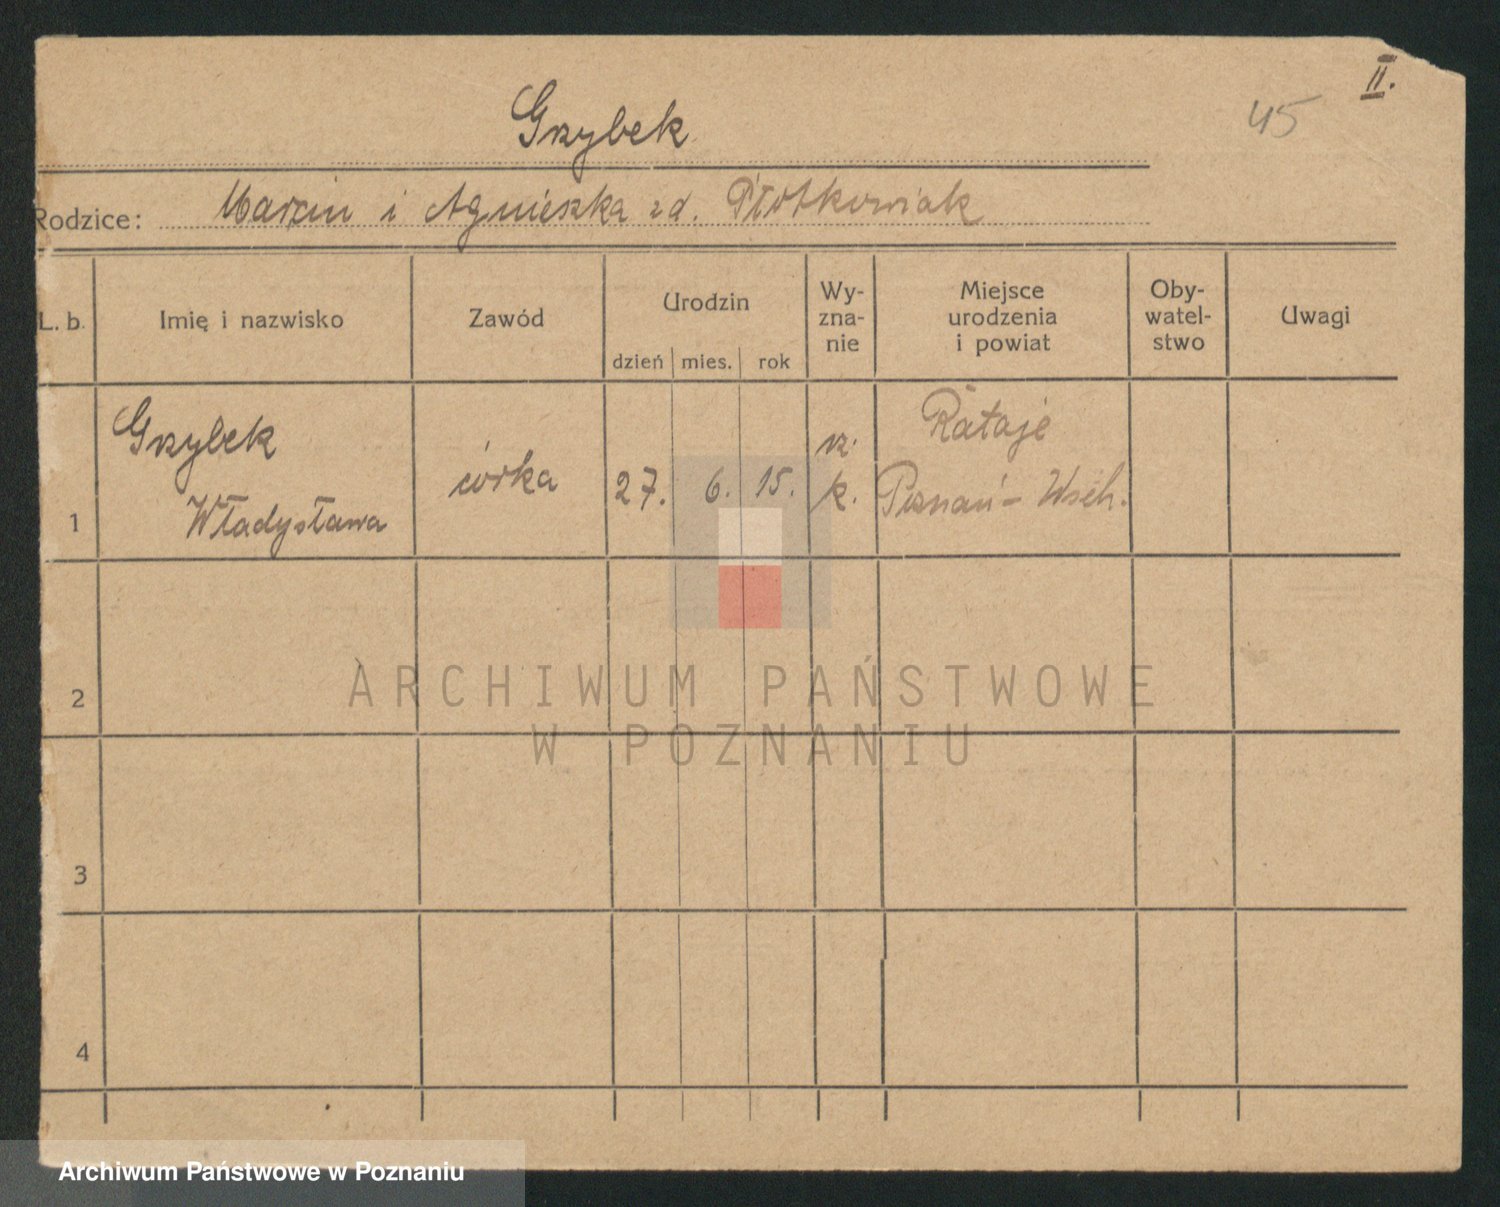 II.
45
Grzybek
Rodzice: Marcin i Agnieszka zd. Piotkowiak
L. b. Imię i nazwisko Zawód Urodzin dzień mies. rok Wy-zna-nie Miejsce urodzenia i powiat Oby-watel-stwo Uwagi
1 Grzybek Władysława córka 27. 6. 15. rz. k. Rataje Poznań - Wsch.
2
ARCHIWUM PAŃSTWOWE
W POZNANIU
3
4
Archiwum Państwowe w Poznaniu